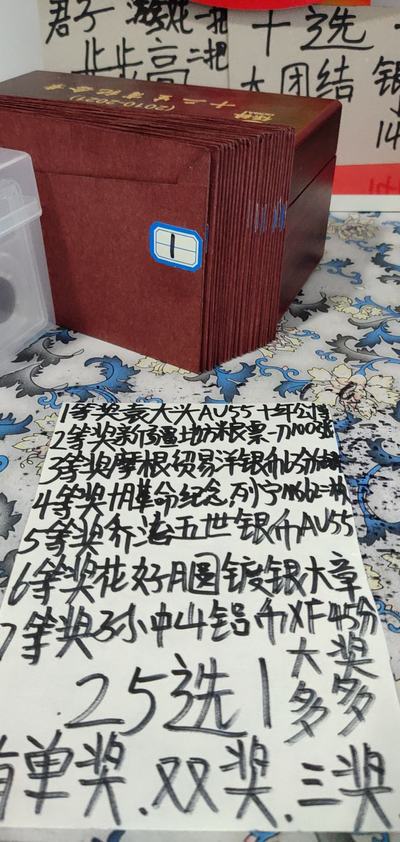 君子 游戏一把
步步高二把
十选一
大团结 银
14
(2010-2021)
1
1等奖袁大头AU55十年公博
2等奖新疆地方粮票一刀100张
3等奖摩根贸易洋银币
4等奖十月革命纪念,列宁MS62一枚
5等奖乔治五世银币AU55
6等奖花好月圆镀银大章
7等奖孙小中山铝币XF45分
25选1
大奖
多多
有单奖.双奖.三奖